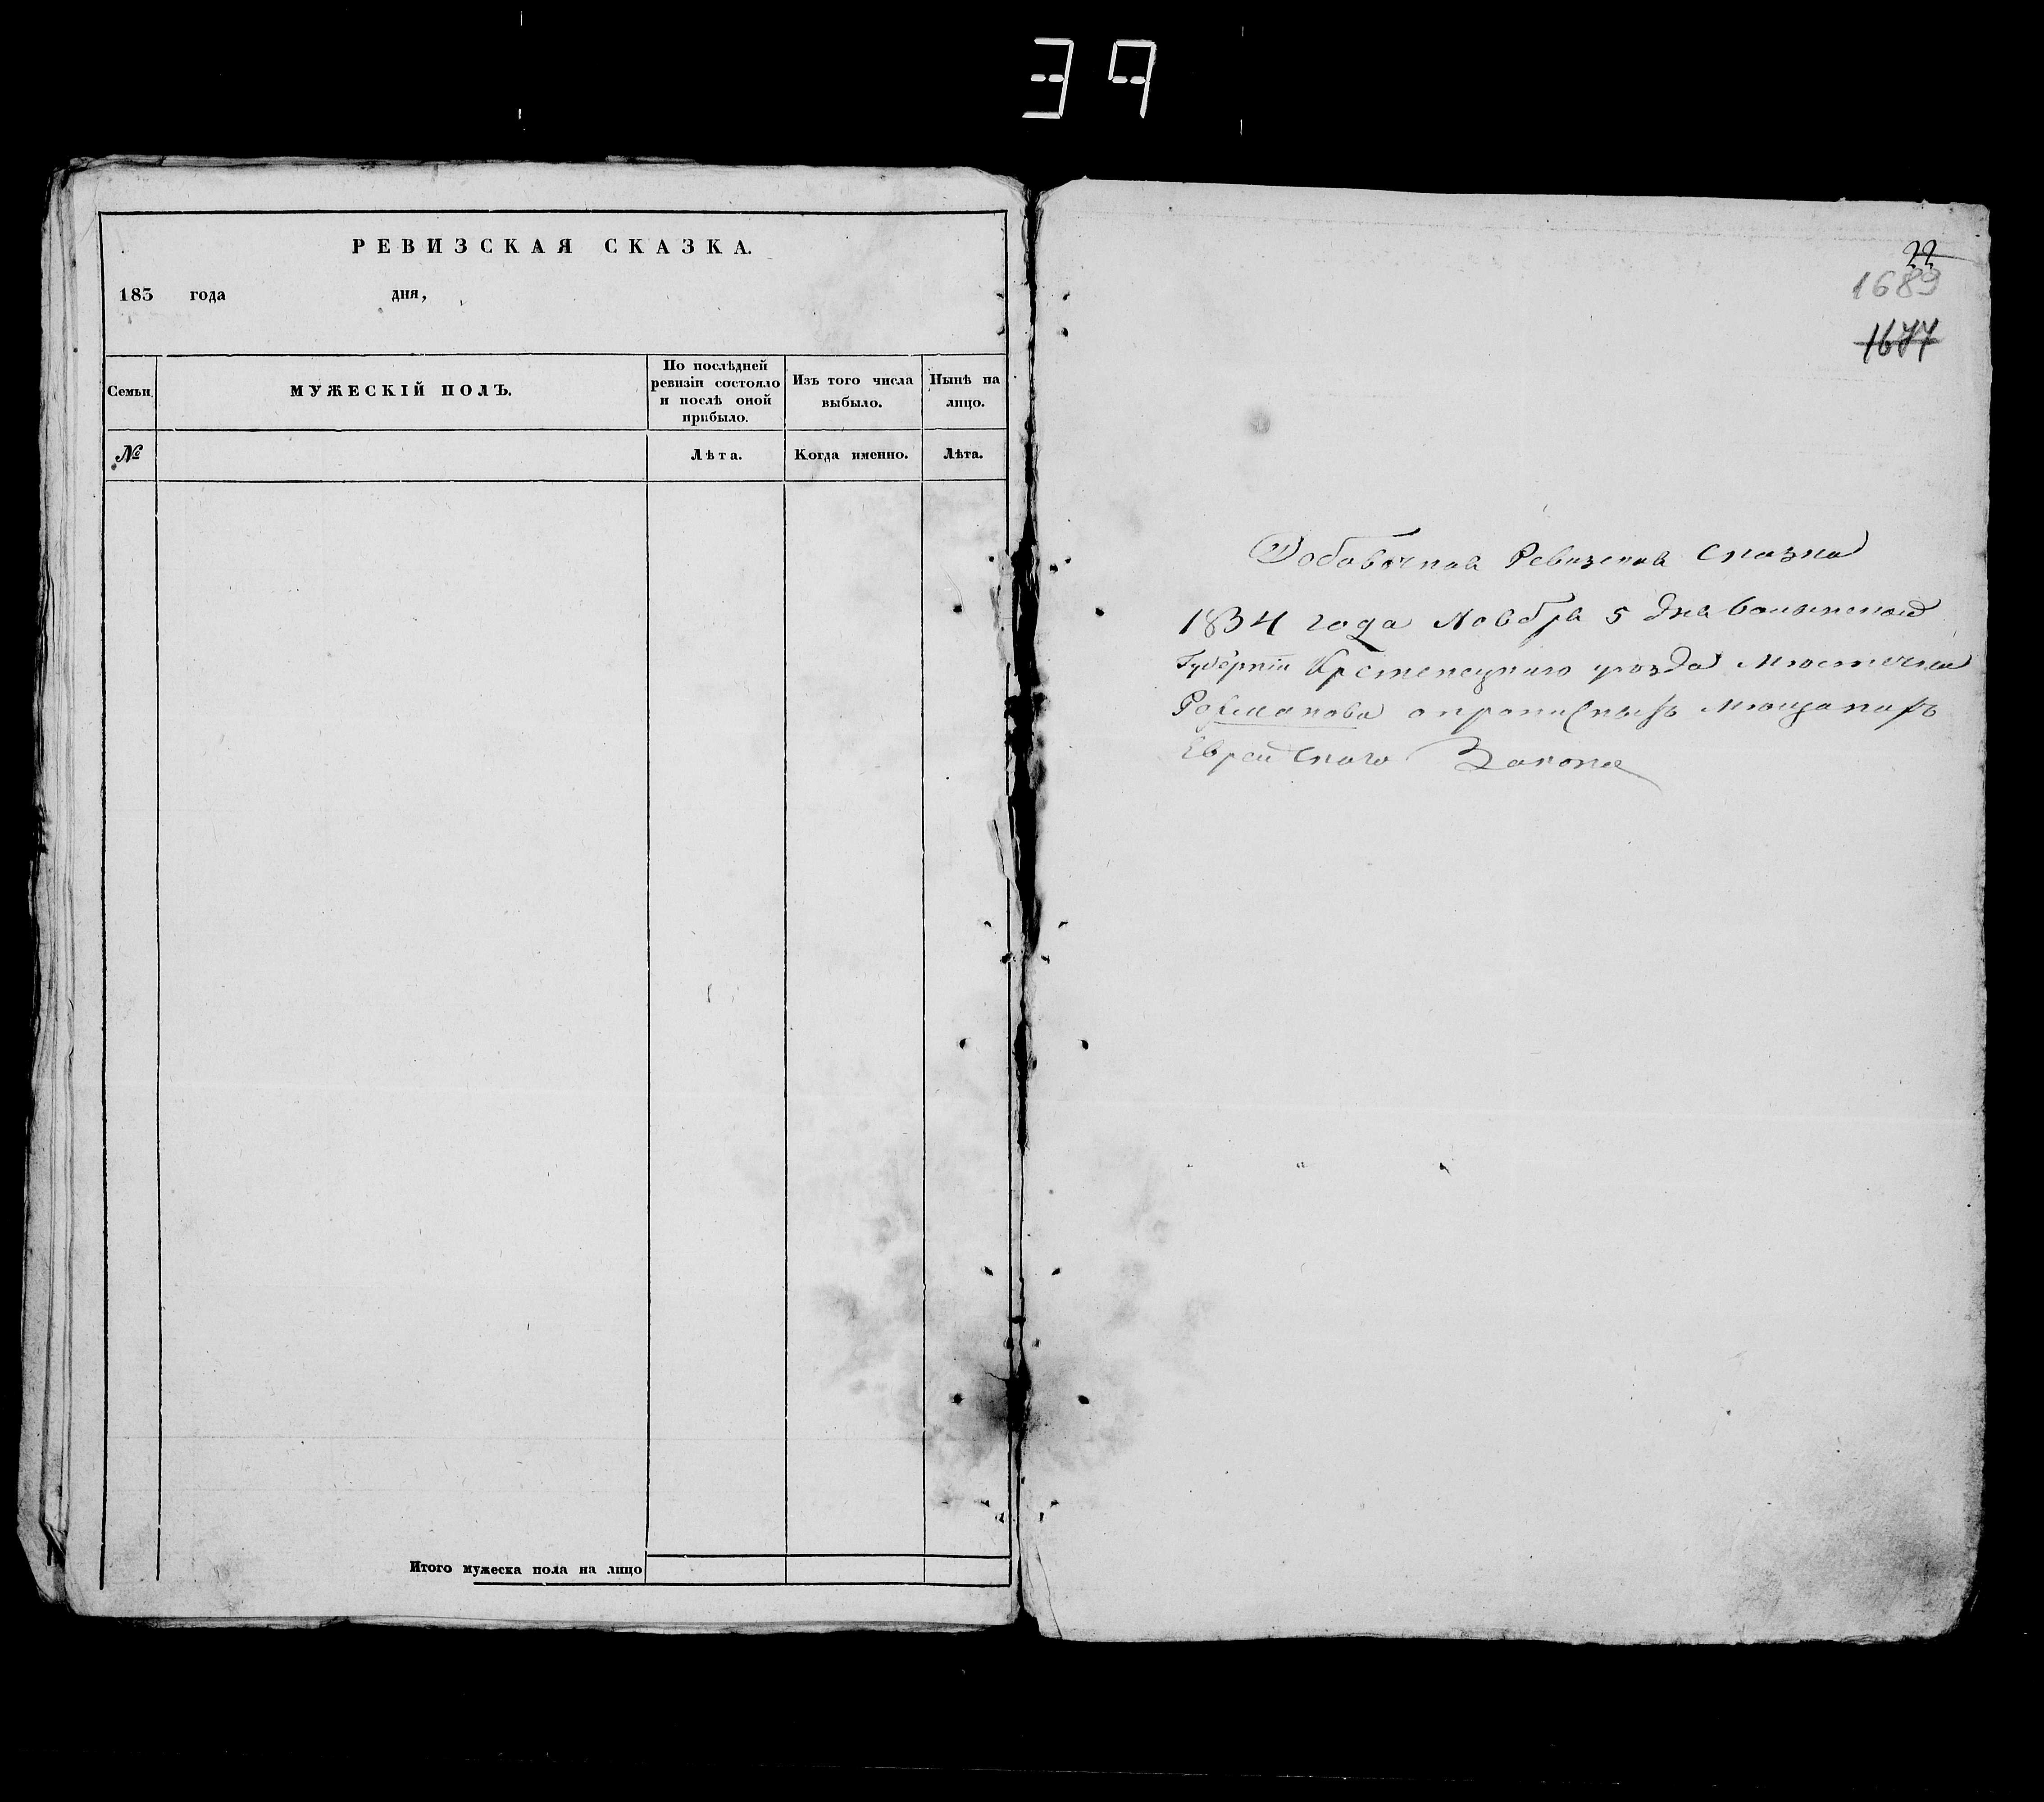 39
РЕВИЗСКАЯ СКАЗКА.
183 года дня,
Семьи
МУЖЕСКІЙ ПОЛЪ.
По послѣдней ревизіи состояло и послѣ оной прибыло.
Изъ того числа выбыло.
Нынѣ на лицо.
№
Лѣта.
Когда именно.
Лѣта.
Итого мужеска пола на лицо
22
1689
1677
Добавочная Ревизская сказка
1834 года Ноября 5 дня Волынской
Губерніи Кременецкаго уѣзда Мѣстечка
Рахманова о прописныхъ мѣщанахъ
Еврейскаго Закона